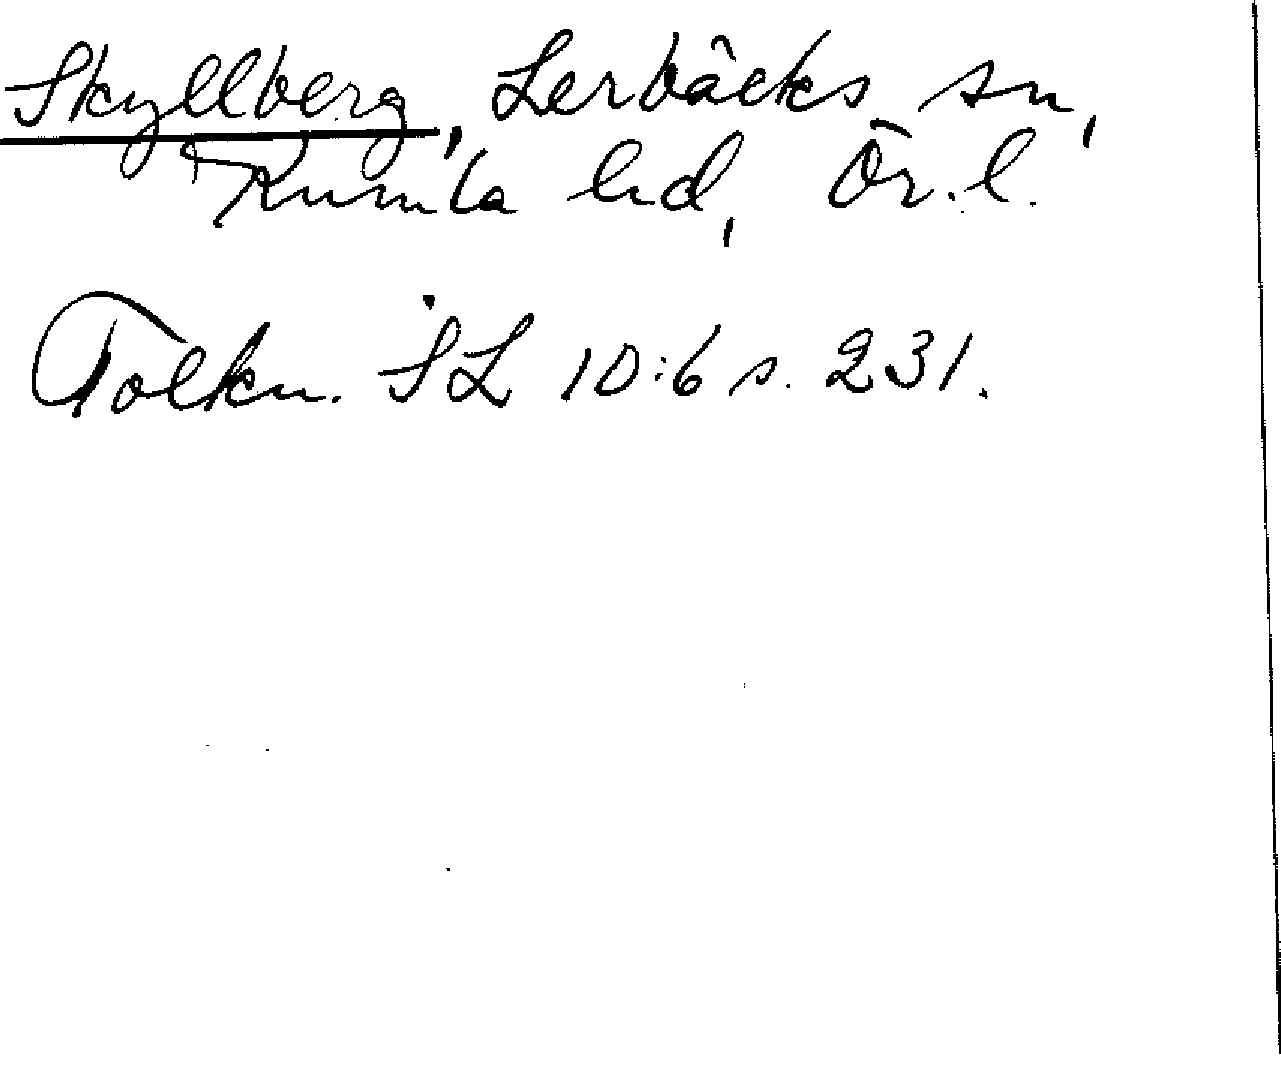 Skyllberg, Lerbäcks sn,
Kumla hd, Ör. l.
Tolkn. SL 10:6 s. 231.